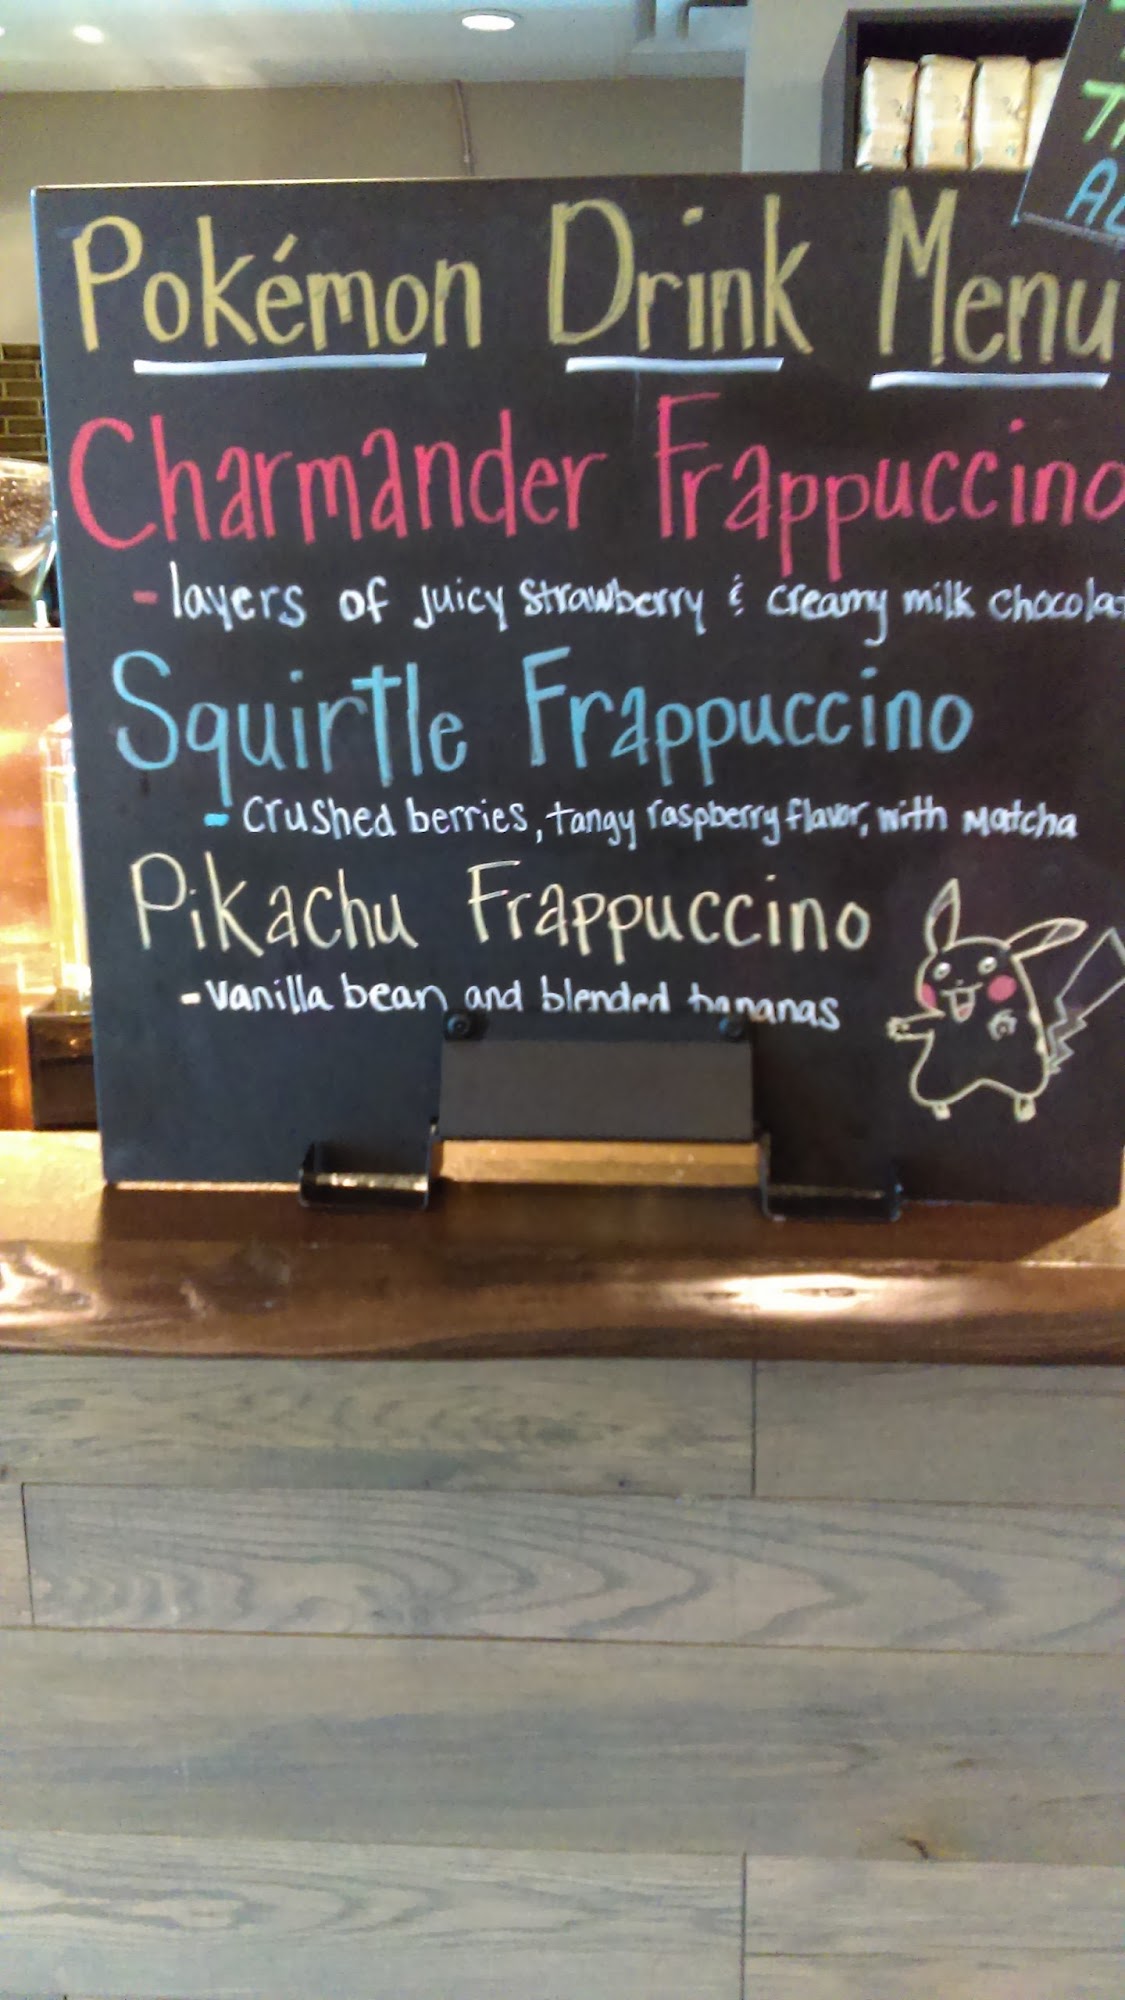 Pokémon Drink Menu
Charmander Frappuccino
- layers of juicy strawberry & creamy milk chocola
Squirtle Frappuccino
- crushed berries, tangy raspberry flavor, with matcha
Pikachu Frappuccino
- vanilla bean and blended bananas